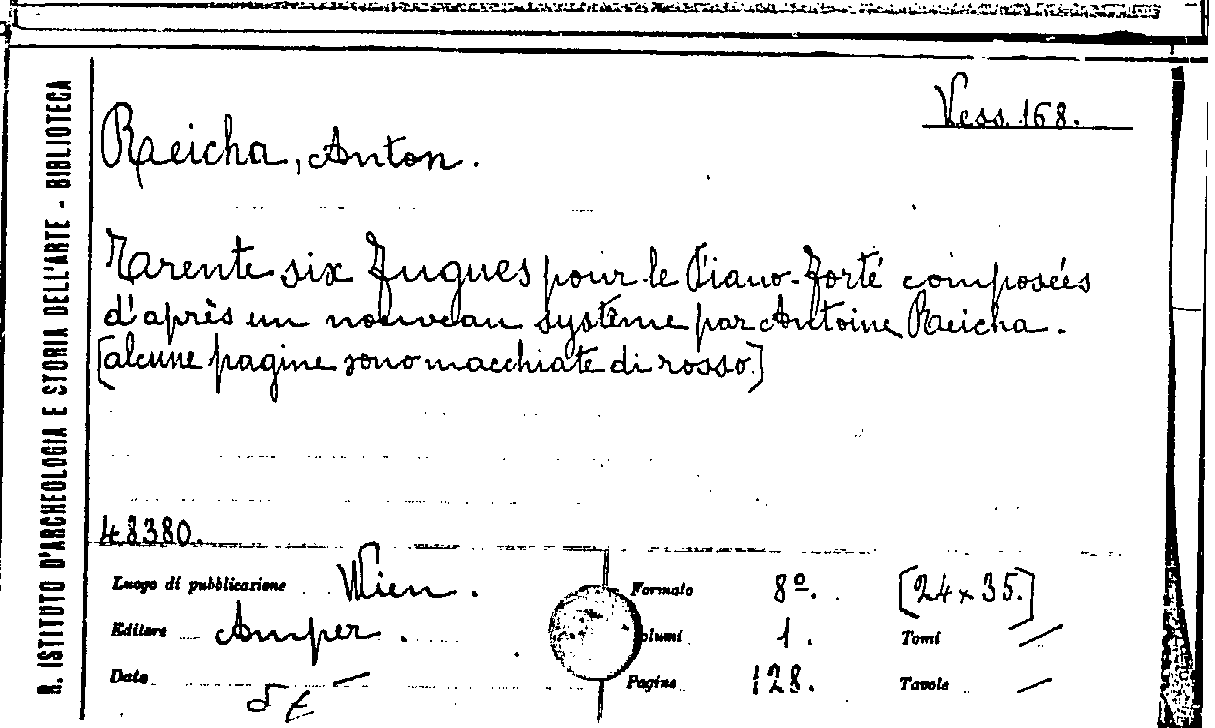 R. ISTITUTO D'ARCHEOLOGIA E STORIA DELL'ARTE - BIBLIOTECA
Vess. 168.
Reicha, Anton.
Trente six Fugues pour le Piano-Forté composées
d'après un nouveau système par Antoine Reicha.
[alcune pagine sono macchiate di rosso.]
48380.
Luogo di pubblicazione Wien. Formato 8º. [24 x 35.]
Editore Amper. olumi 1. Tomi /
Data — Pagine 128. Tavole /